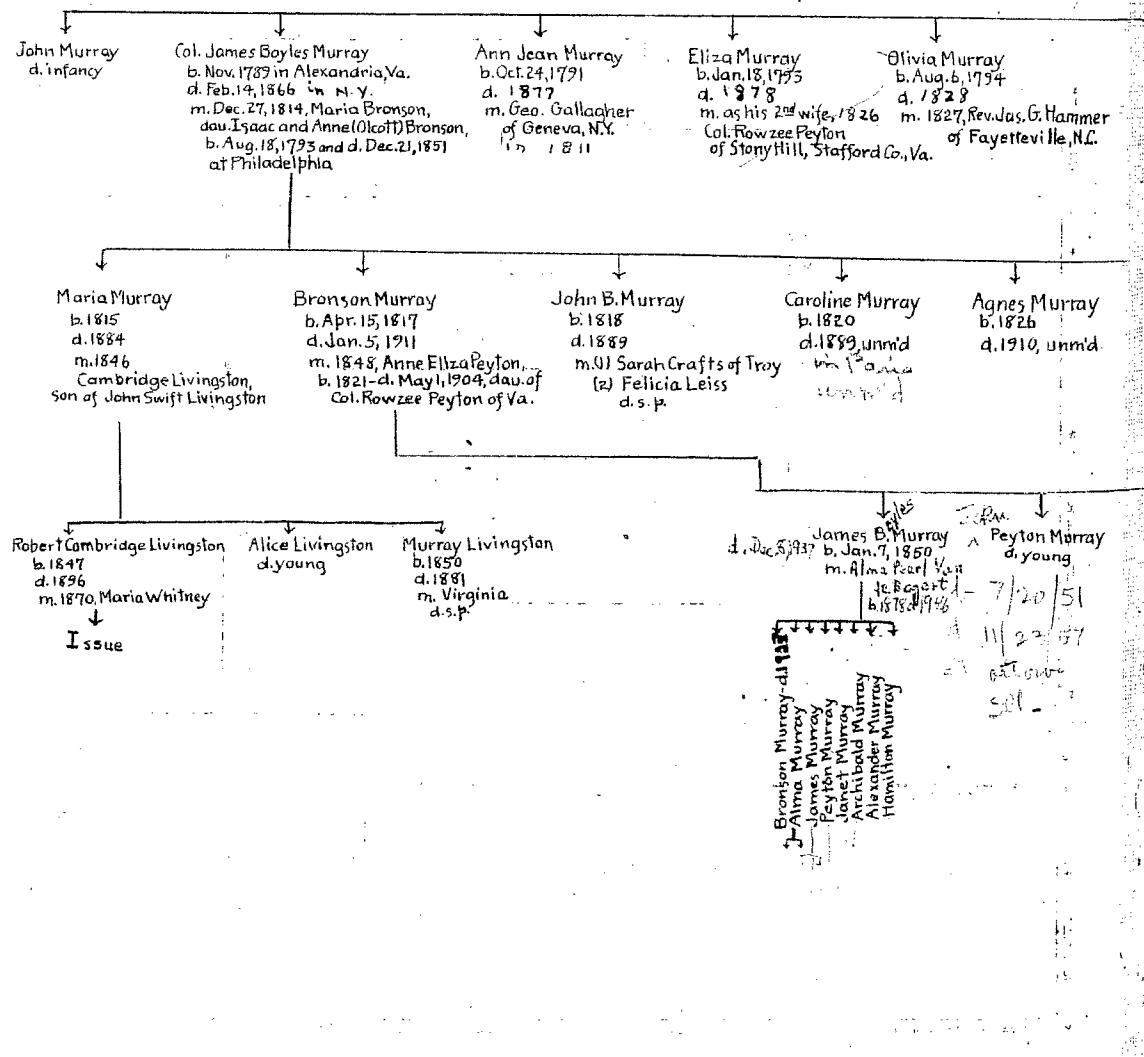 John Murray
d. infancy
Col. James Boyles Murray
b. Nov. 1789 in Alexandria, Va.
d. Feb. 14, 1866 in N.Y.
m. Dec. 27, 1814, Maria Bronson,
dau. Isaac and Anne (Olcott) Bronson,
b. Aug. 18, 1793 and d. Dec. 21, 1851
at Philadelphia
Ann Jean Murray
b. Oct. 24, 1791
d. 1877
m. Geo. Gallagher
of Geneva, N.Y.
in 1811
Eliza Murray
b. Jan. 18, 1793
d. 1878
m. as his 2nd wife, 1826
Col. Rowzee Peyton
of Stony Hill, Stafford Co., Va.
Olivia Murray
b. Aug. 6, 1794
d. 1828
m. 1827, Rev. Jas. G. Hammer
of Fayetteville, N.C.
Maria Murray
b. 1815
d. 1884
m. 1846
Cambridge Livingston,
son of John Swift Livingston
Bronson Murray
b. Apr. 15, 1817
d. Jan. 5, 1911
m. 1848, Anne Eliza Peyton,
b. 1821-d. May 1, 1904, dau. of
Col. Rowzee Peyton of Va.
John B. Murray
b. 1818
d. 1889
m. (1) Sarah Crafts of Troy
(2) Felicia Leiss
d.s.p.
Caroline Murray
b. 1820
d. 1889, unm'd
in Paris
unm'd
Agnes Murray
b. 1826
d. 1910, unm'd
Robert Cambridge Livingston
b. 1847
d. 1896
m. 1870, Maria Whitney
Issue
Alice Livingston
d. young
Murray Livingston
b. 1850
d. 1881
m. Virginia
d.s.p.
James Boyles Murray
d. Dec 8, 1937
b. Jan. 7, 1850
m. Alma Pearl Van
de Bogert
b. 1878 d. 1946
Peyton Murray
d. young
7/20/51
11/22/57
Bronson Murray-d. 1925
Alma Murray
James Murray
Peyton Murray
Janet Murray
Archibald Murray
Alexander Murray
Hamilton Murray